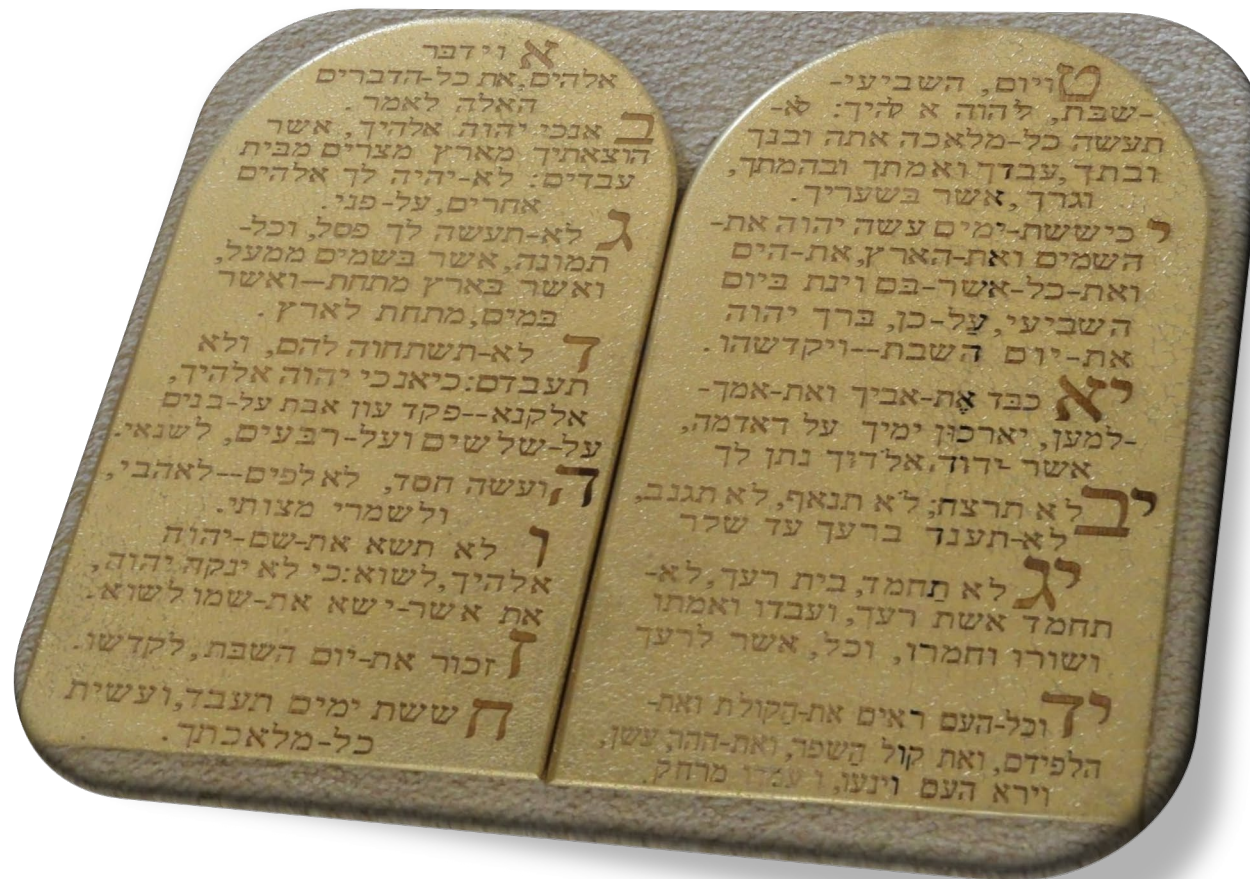 א וידבר
אלהים,את כל-הדברים
האלה לאמר.
ב אנכי יהוה אלהיך, אשר
הוצאתיך מארץ מצרים מבית
עבדים: לא-יהיה לך אלהים
אחרים,על-פני.
ג לא-תעשה לך פסל, וכל-
תמונה, אשר בשמים ממעל,
ואשר בארץ מתחת—ואשר
במים,מתחת לארץ.
ד לא-תשתחוה להם, ולא
תעבדם:כיאנכי יהוה אלהיך,
אלקנא--פקד עון אבת על-בנים
על-שלשים ועל-רבעים, לשנאי.
ה ועשה חסד, לאלפים--לאהבי,
ולשמרי מצותי.
ו לא תשא את-שם-יהוה
אלהיך,לשוא:כי לא ינקה יהוה,
את אשר-ישא את-שמו לשוא.
ז זכור את-יום השבת,לקדשו.
ח ששת ימים תעבד,ועשית
כל-מלאכתך.
ט ויום, השביעי-
-שבת, ליהוה א להיך: לא-
תעשה כל-מלאכה אתה ובנך
ובתך,עבדך ואמתך ובהמתך,
וגרך,אשר בשעריך.
י כיששת-ימים עשה יהוה את-
השמים ואת-הארץ,את-הים
ואת-כל-אשר-בם וינת ביום
השביעי,על-כן, ברך יהוה
את-יום השבת--ויקדשהו.
יא כבד את-אביך ואת-אמך-
-למען, יארכון ימיך על דאדמה,
אשר ידוד,אלדיך נתן לך
יב לא תרצח; לא תנאף, לא תגנב,
לא-תענד ברעך עד שלר
יג לא תחמד, בית רעך,לא-
תחמד אשת רעך, ועבדו ואמתו
ושורו וחמרו, וכל, אשר לרעך
יד וכל-העם ראים את-הקולת ואת-
הלפידם, ואת קול השפר, ואת-ההר, עשן,
וירא העם וינעו, ועמדו מרחק.